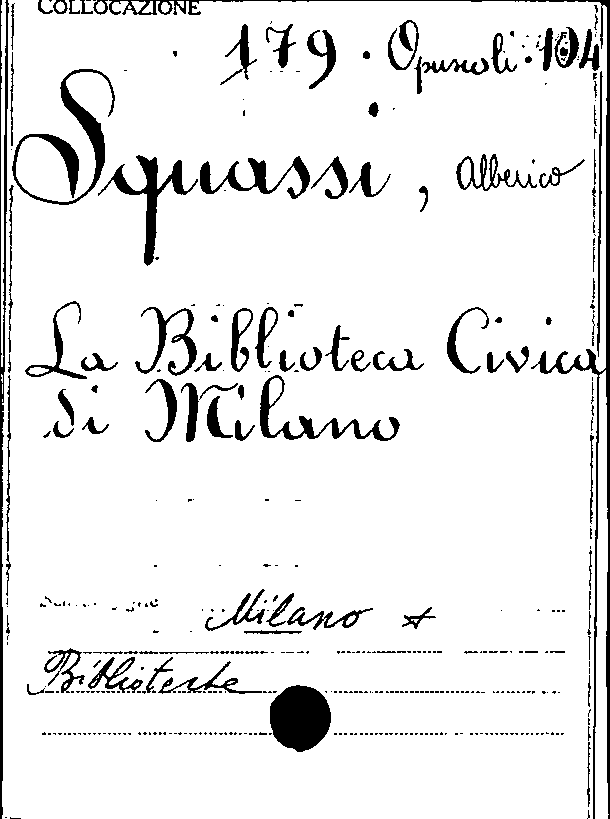 COLLOCAZIONE
179. Opuscoli. 104
Squassi, Alberico
La Biblioteca Civica
di Milano
Milano
Biblioteche